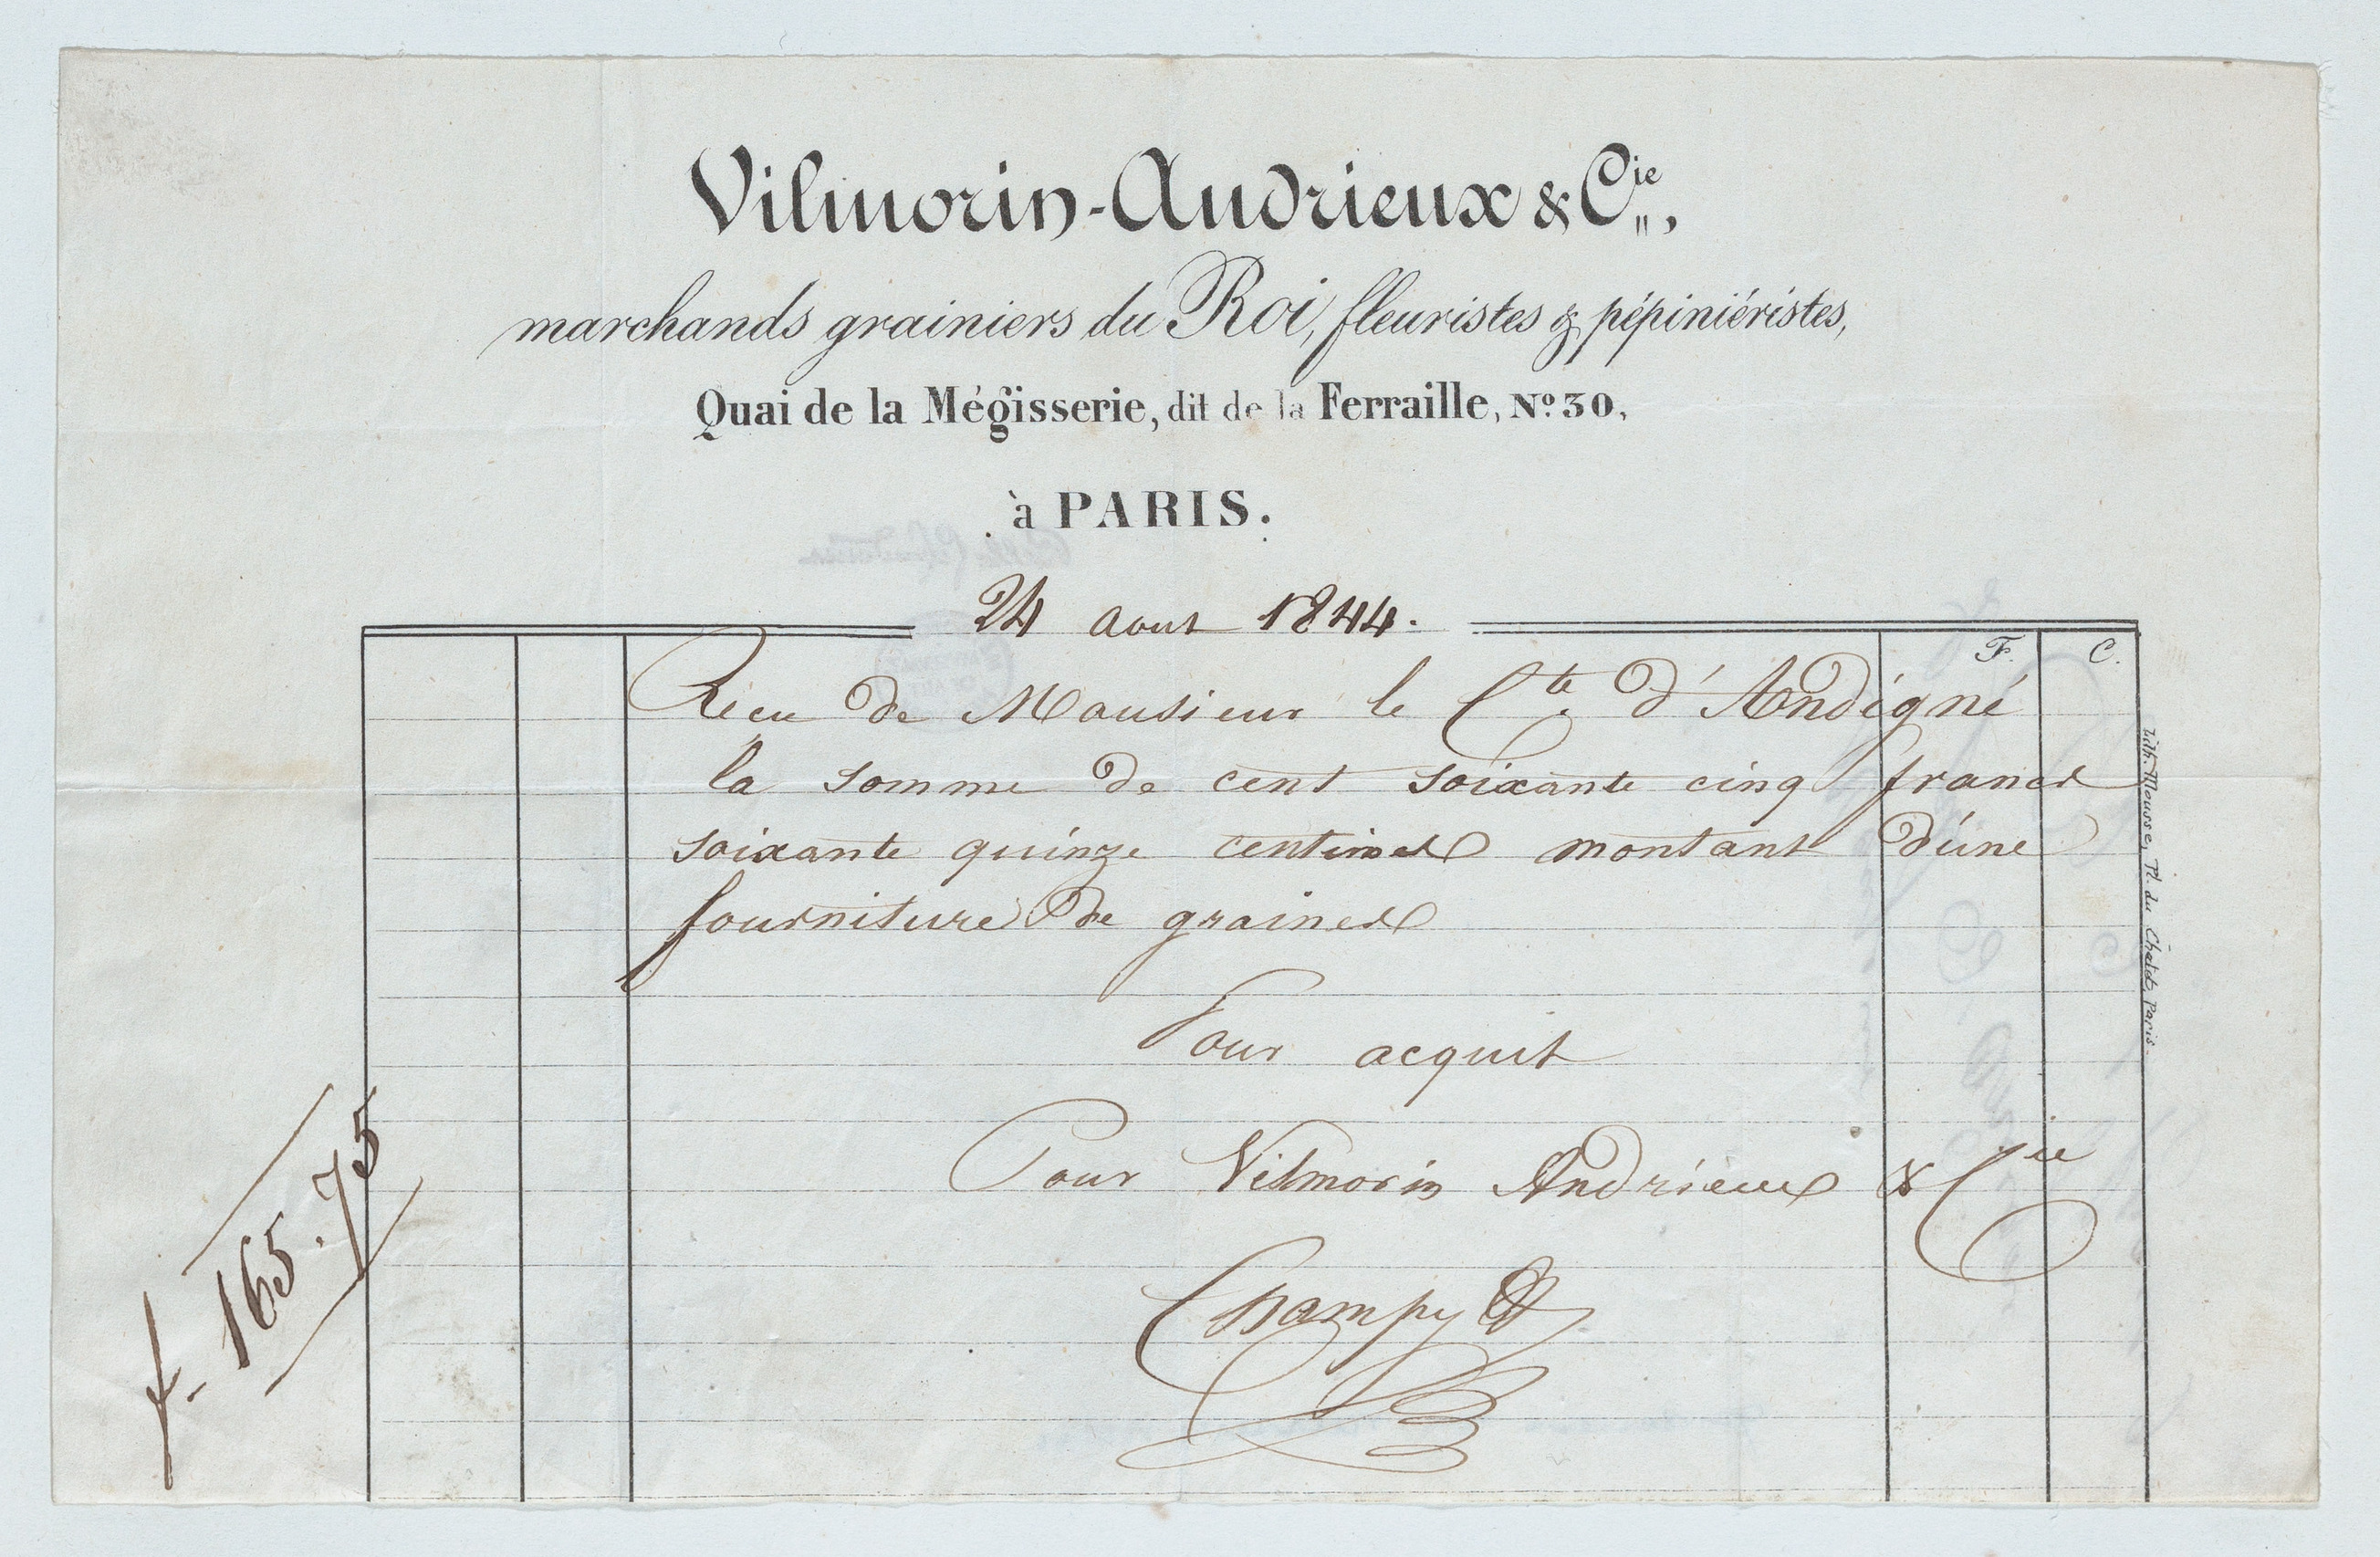 Vilmorin-Andrieux & Cie,
marchands grainiers du Roi, fleuristes & pépiniéristes,
Quai de la Mégisserie, dit de la Ferraille, No 30,
à PARIS.
24 aout 1844.
F. C.
Recu de Monsieur le Cte d'Andigné
la somme de cent soixante cinq francs
soixante quinze centimes montant d'une
fourniture de graines
Pour acquit
Pour Vilmorin Andrieux & Cie
Champy
f. 165.75
Lith. Mousse, Pl. du Châtelet, Paris.